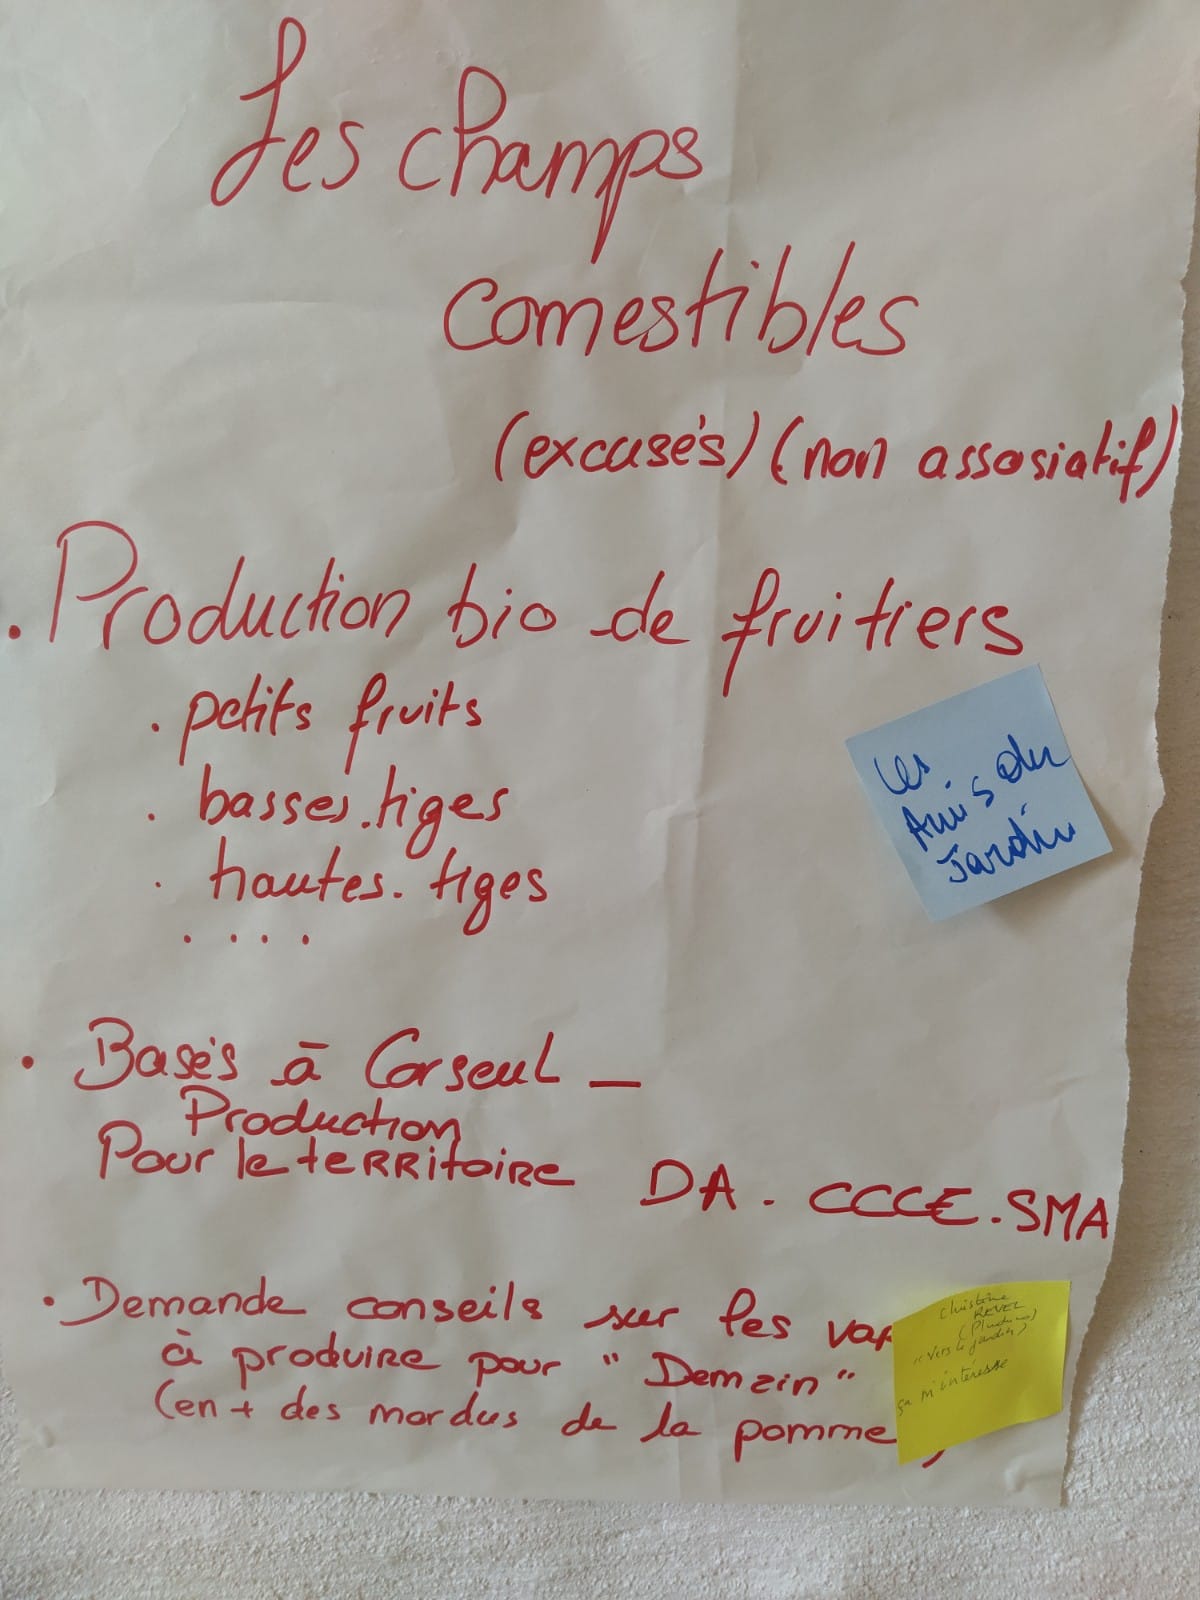 Les champs
comestibles
(excusés) (non assosiatif)
. Production bio de fruitiers
. petits fruits
. basses.tiges
. hautes.tiges
. . . .
Les
Amis du
Jardin
. Basés à Corseul _
Production
Pour le territoire
DA. CCCE.SMA
. Demande conseils sur les var
à produire pour "Demain"
(en + des mordus de la pomme)
Christine
REVEL
"Vers le jardin"
ça m'intéresse